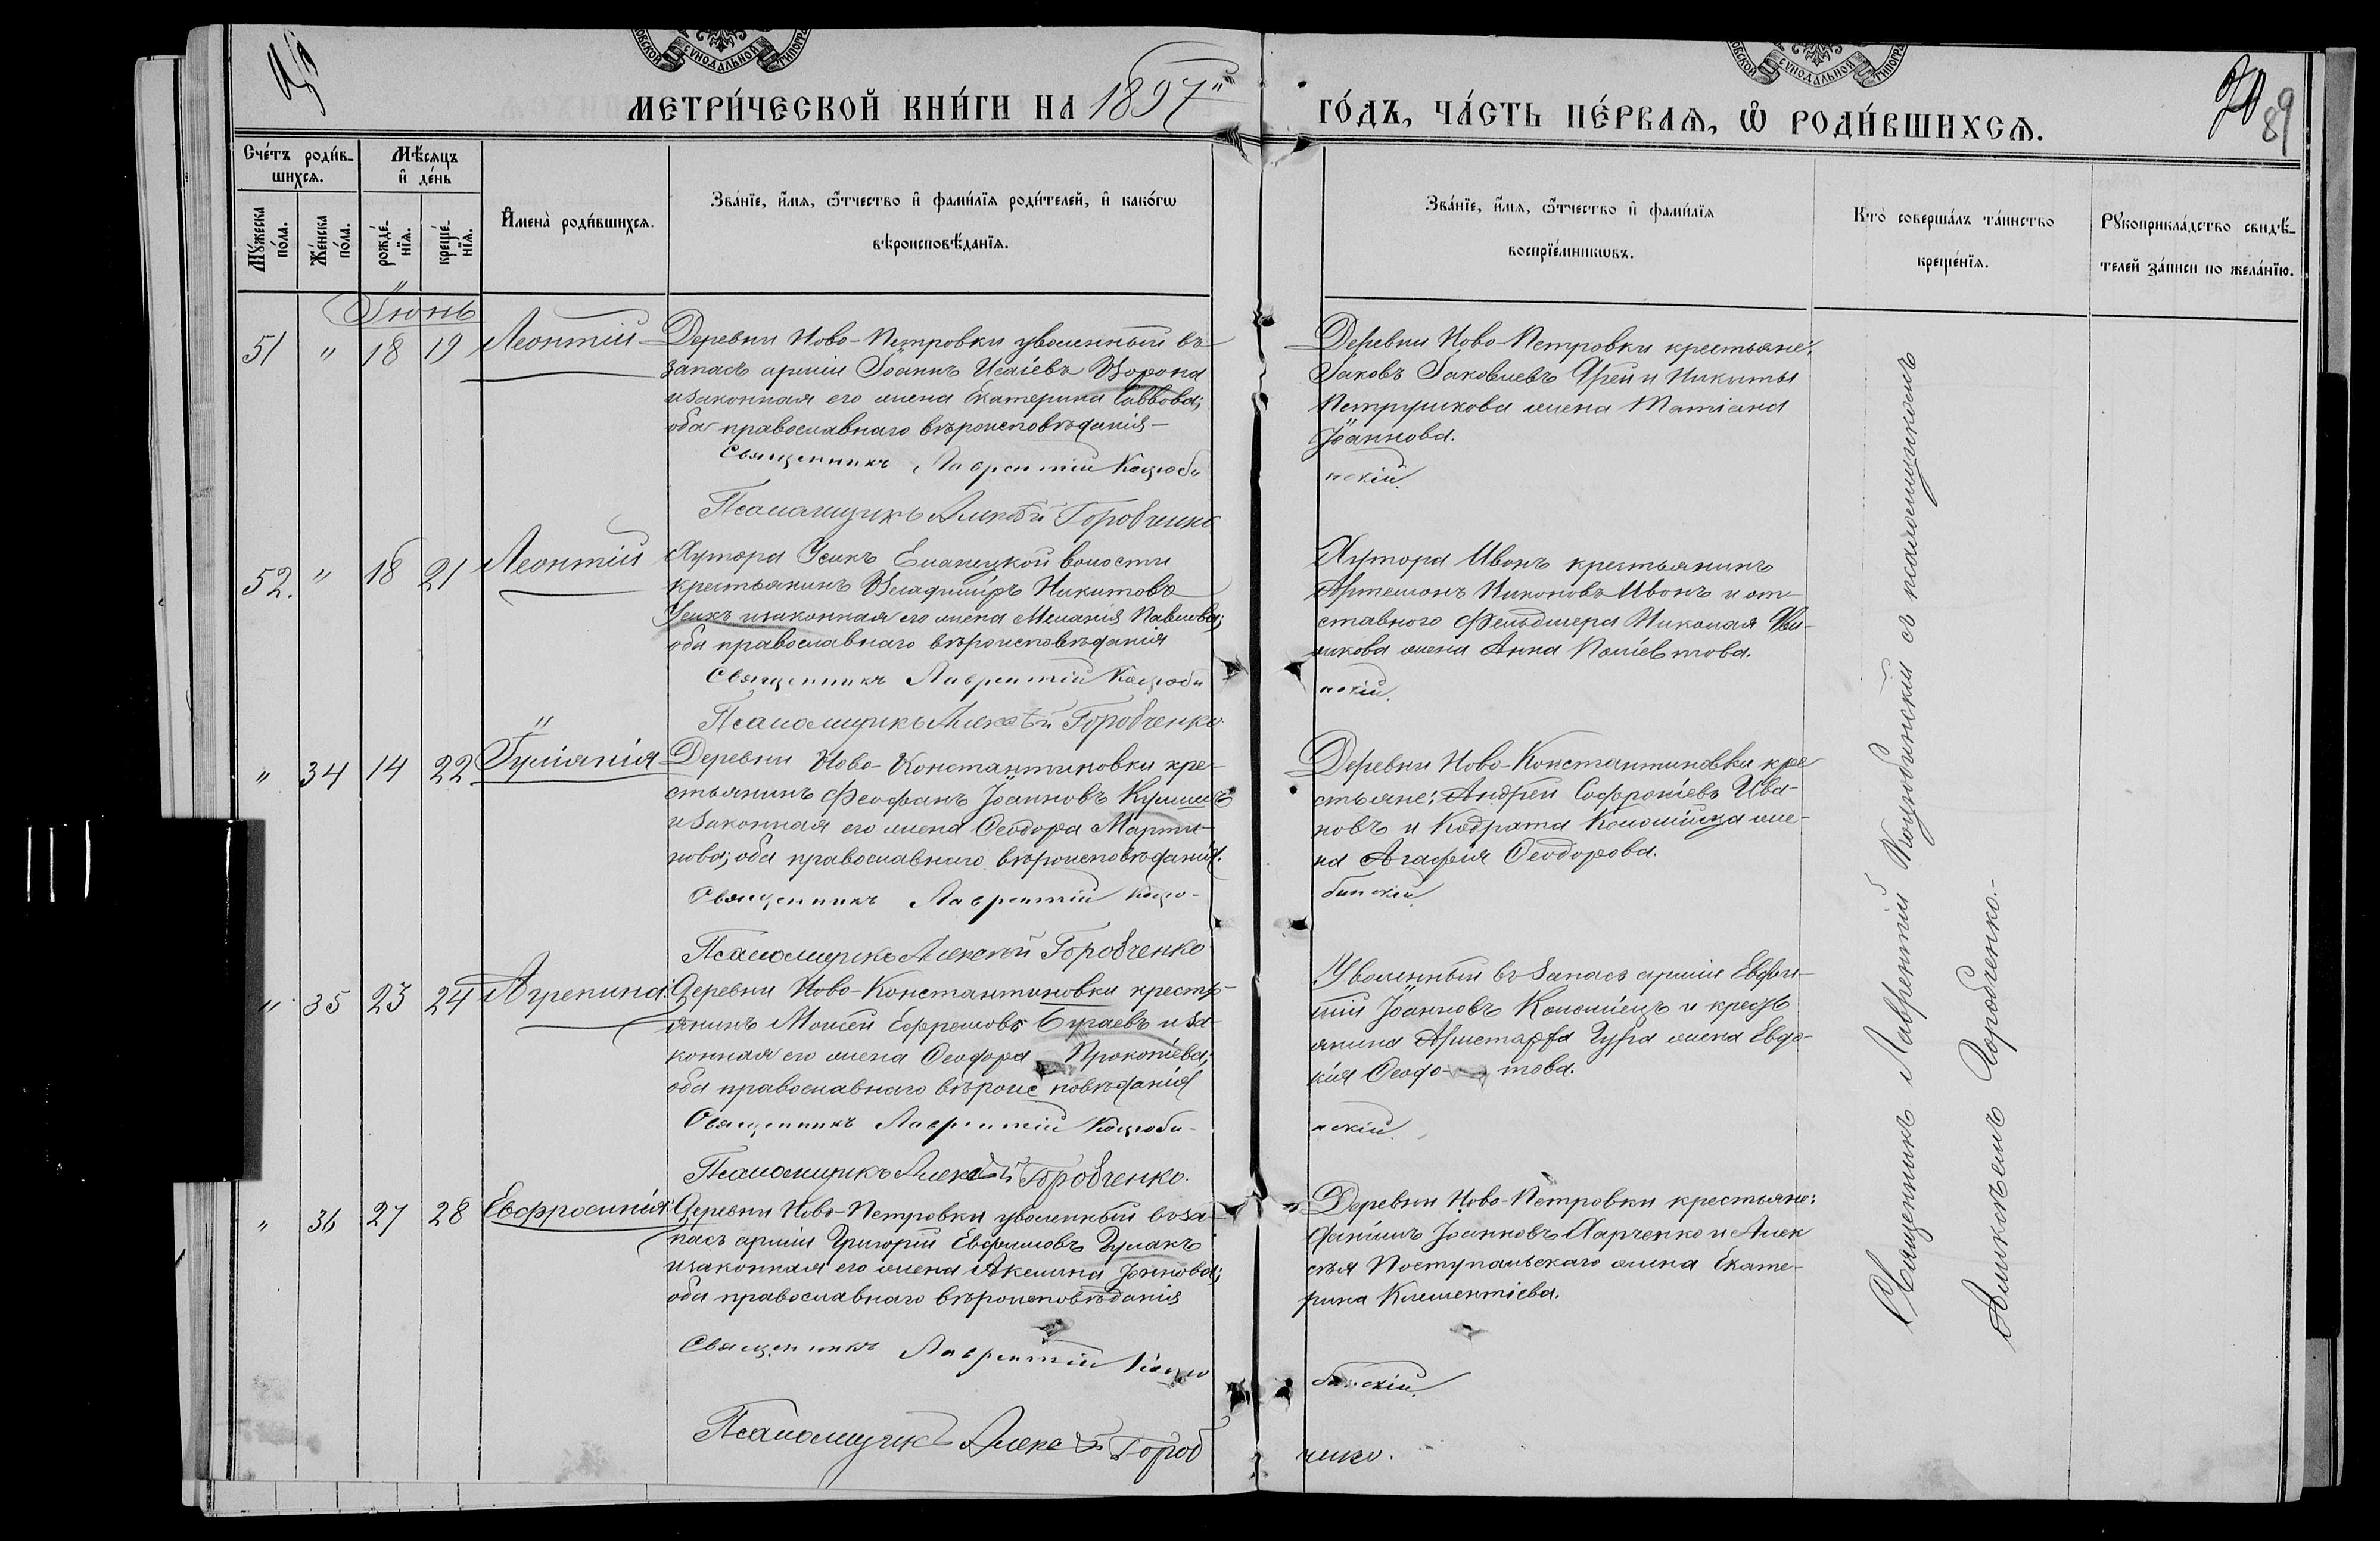 МЕТРИ́ЧЕСКОЙ КНИ́ГИ НА 1897 ГО́ДЪ, ЧА́СТЬ ПЕ́РВАѦ, Ѡ҆ РОДИ́ВШИХСѦ.
89
Сче́тъ роди́в-
шихсѧ.
Мѣ́сѧцъ
и҆ де́нь
Мꙋ́жеска
по́ла.
Же́нска
по́ла.
рожде́-
нїѧ.
креще́-
нїѧ.
И҆мена̀ роди́вшихсѧ.
Зва́нїе, и҆́мѧ, ѻ҆́тчество и҆ фами́лїѧ роди́телей, и҆ како́гѡ
вѣроисповѣ́данїѧ.
Зва́нїе, и҆́мѧ, ѻ҆́тчество и҆ фами́лїѧ
воспрїе́мникѡвъ.
Кто̀ соверша́лъ та́инство
креще́нїѧ.
Рꙋкоприкла́дство свидѣ́-
телей за́писи по жела́нїю.
Іюнь
51 " 18 19 Леонтій
Деревни Ново-Петровки уволенный въ
запасъ арміи Іоаннъ Исаіевъ Ворона
и законная его жена Екатерина Саввова;
оба православнаго вѣроисповѣданія
Священникъ Лаврентій Коцюби
Псаломщикъ Алексѣй Горобченко
Деревни Ново-Петровки крестьяне:
Іаковъ Іаковлевъ и Никиты
Петрушкова жена Татіана
Іоаннова.
нскій.
52. " 18 21 Леонтій
Хутора Усикъ Еланецкой волости
крестьянинъ Владиміръ Никитовъ
Усикъ и законная его жена Меланія Павлова;
оба православнаго вѣроисповѣданія
Священникъ Лаврентій Коцюби
Псаломщикъ Алексѣй Горобченко
Хутора Ивонъ крестьянинъ
Артемонъ Никоновъ Ивонъ и от-
ставного фельдшера Николая
жена Анна Поліевтова.
нскій.
" 34 14 22 Іуліанія
Деревни Ново-Константиновки кре-
стьянинъ Феофанъ Іоанновъ
и законная его жена Ѳеодора Марти-
нова; оба православнаго вѣроисповѣданія.
Священникъ Лаврентій Коцю-
Псаломщикъ Алексѣй Горобченко
Деревни Ново-Константиновки кре
стьяне: Андрей Софроніевъ Ива-
новъ и Кодрата Коломійца же-
на Агафія Ѳеодорова.
бинскій.
" 35 23 24 Агрепина
Деревни Ново-Константиновки кресть-
янинъ Моисей Ефремовъ Бугаевъ и за-
конная его жена Ѳеодора Прокопіева;
оба православнаго вѣроисповѣданія
Священникъ Лаврентій Коцюби-
Псаломщикъ Алексѣй Горобченко.
Уволенный въ запасъ арміи Евфи-
мій Іоанновъ Коломіецъ и кресть
янина Аристарха жена Евдо-
кія Ѳеодо-това.
нскій.
" 36 27 28 Евфросинія
Деревни Ново-Петровки уволенный въ за-
пасъ арміи Григорій Евфимовъ Чумакъ
и законная его жена Акелина Іоннова;
оба православнаго вѣроисповѣданія
Священникъ Лаврентій Коцю
Псаломщикъ Алексѣй Гороб
Деревни Ново-Петровки крестьяне:
Даніилъ Іоанновъ Харченко и Алек
сѣя Поступальскаго жена Екате-
рина Климентіева.
бинскій.
ченко.
Священникъ Лаврентій Коцюбинскій съ псаломщикомъ
Алексѣемъ Горобченко.